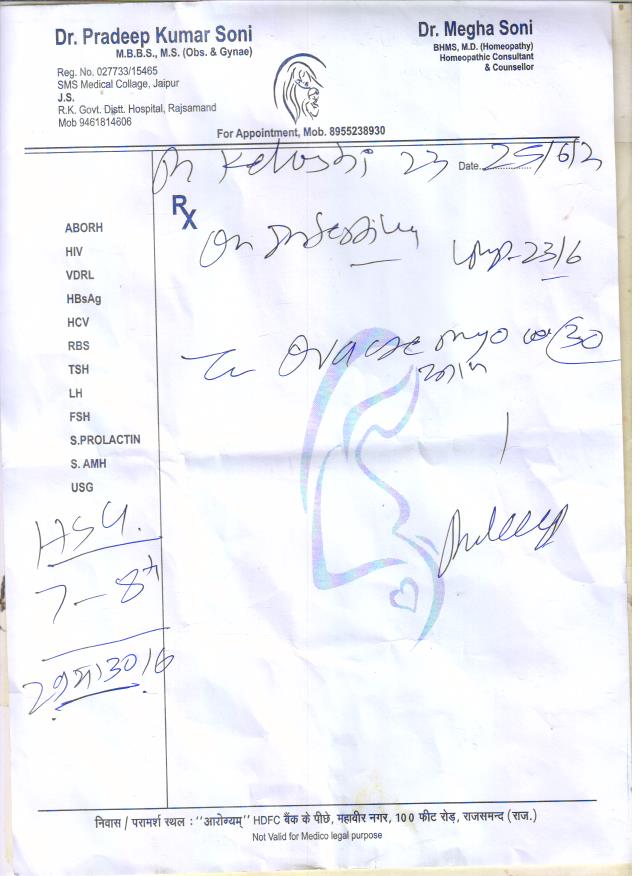 Dr. Pradeep Kumar Soni
M.B.B.S., M.S. (Obs. & Gynae)
Reg. No. 027733/15465
SMS Medical Collage, Jaipur
J.S.
R.K. Govt. Distt. Hospital, Rajsamand
Mob 9461814606
Dr. Megha Soni
BHMS, M.D. (Homeopathy)
Homeopathic Consultant
& Counsellor
For Appointment, Mob. 8955238930
23 Date 25/6/2
Rx
On
LMP-23/6
ABORH
HIV
VDRL
HBsAg
HCV
RBS
TSH
LH
FSH
S.PROLACTIN
S. AMH
USG
HSG.
7-8th
29 या 30/6
निवास / परामर्श स्थल : ''आरोग्यम्'' HDFC बैंक के पीछे, महावीर नगर, 100 फीट रोड़, राजसमन्द (राज.)
Not Valid for Medico legal purpose